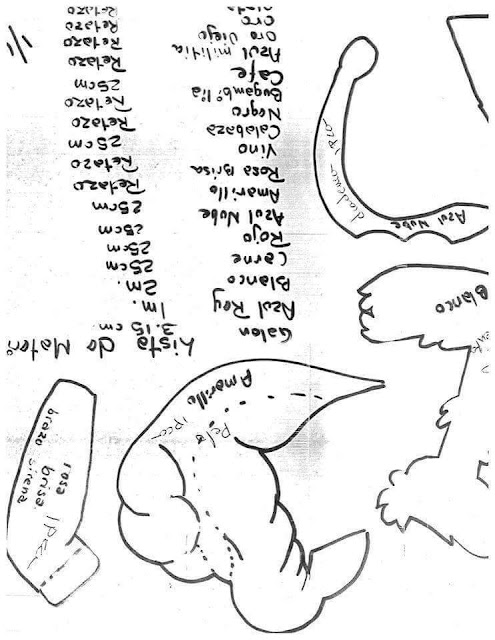 Lista de Mater
Galon 3.15 cm.
Azul Rey 1m.
Blanco 2m.
Carne 25cm
Rojo 25cm
Azul Nube 25cm
Amarillo 25cm
Rosa Brisa Retazo
Vino Retazo
Calabaza 25cm
Negro Retazo
Bugambilia Retazo
Cafe 25cm
Azul militia Retazo
Oro Viejo Retazo
Oro Retazo
Retazo
1/1
diadema 1Pza
Azul Nube
Blanco
Amarillo
Pelo 1Pza
rosa brisa 1Pza
brazo sirena